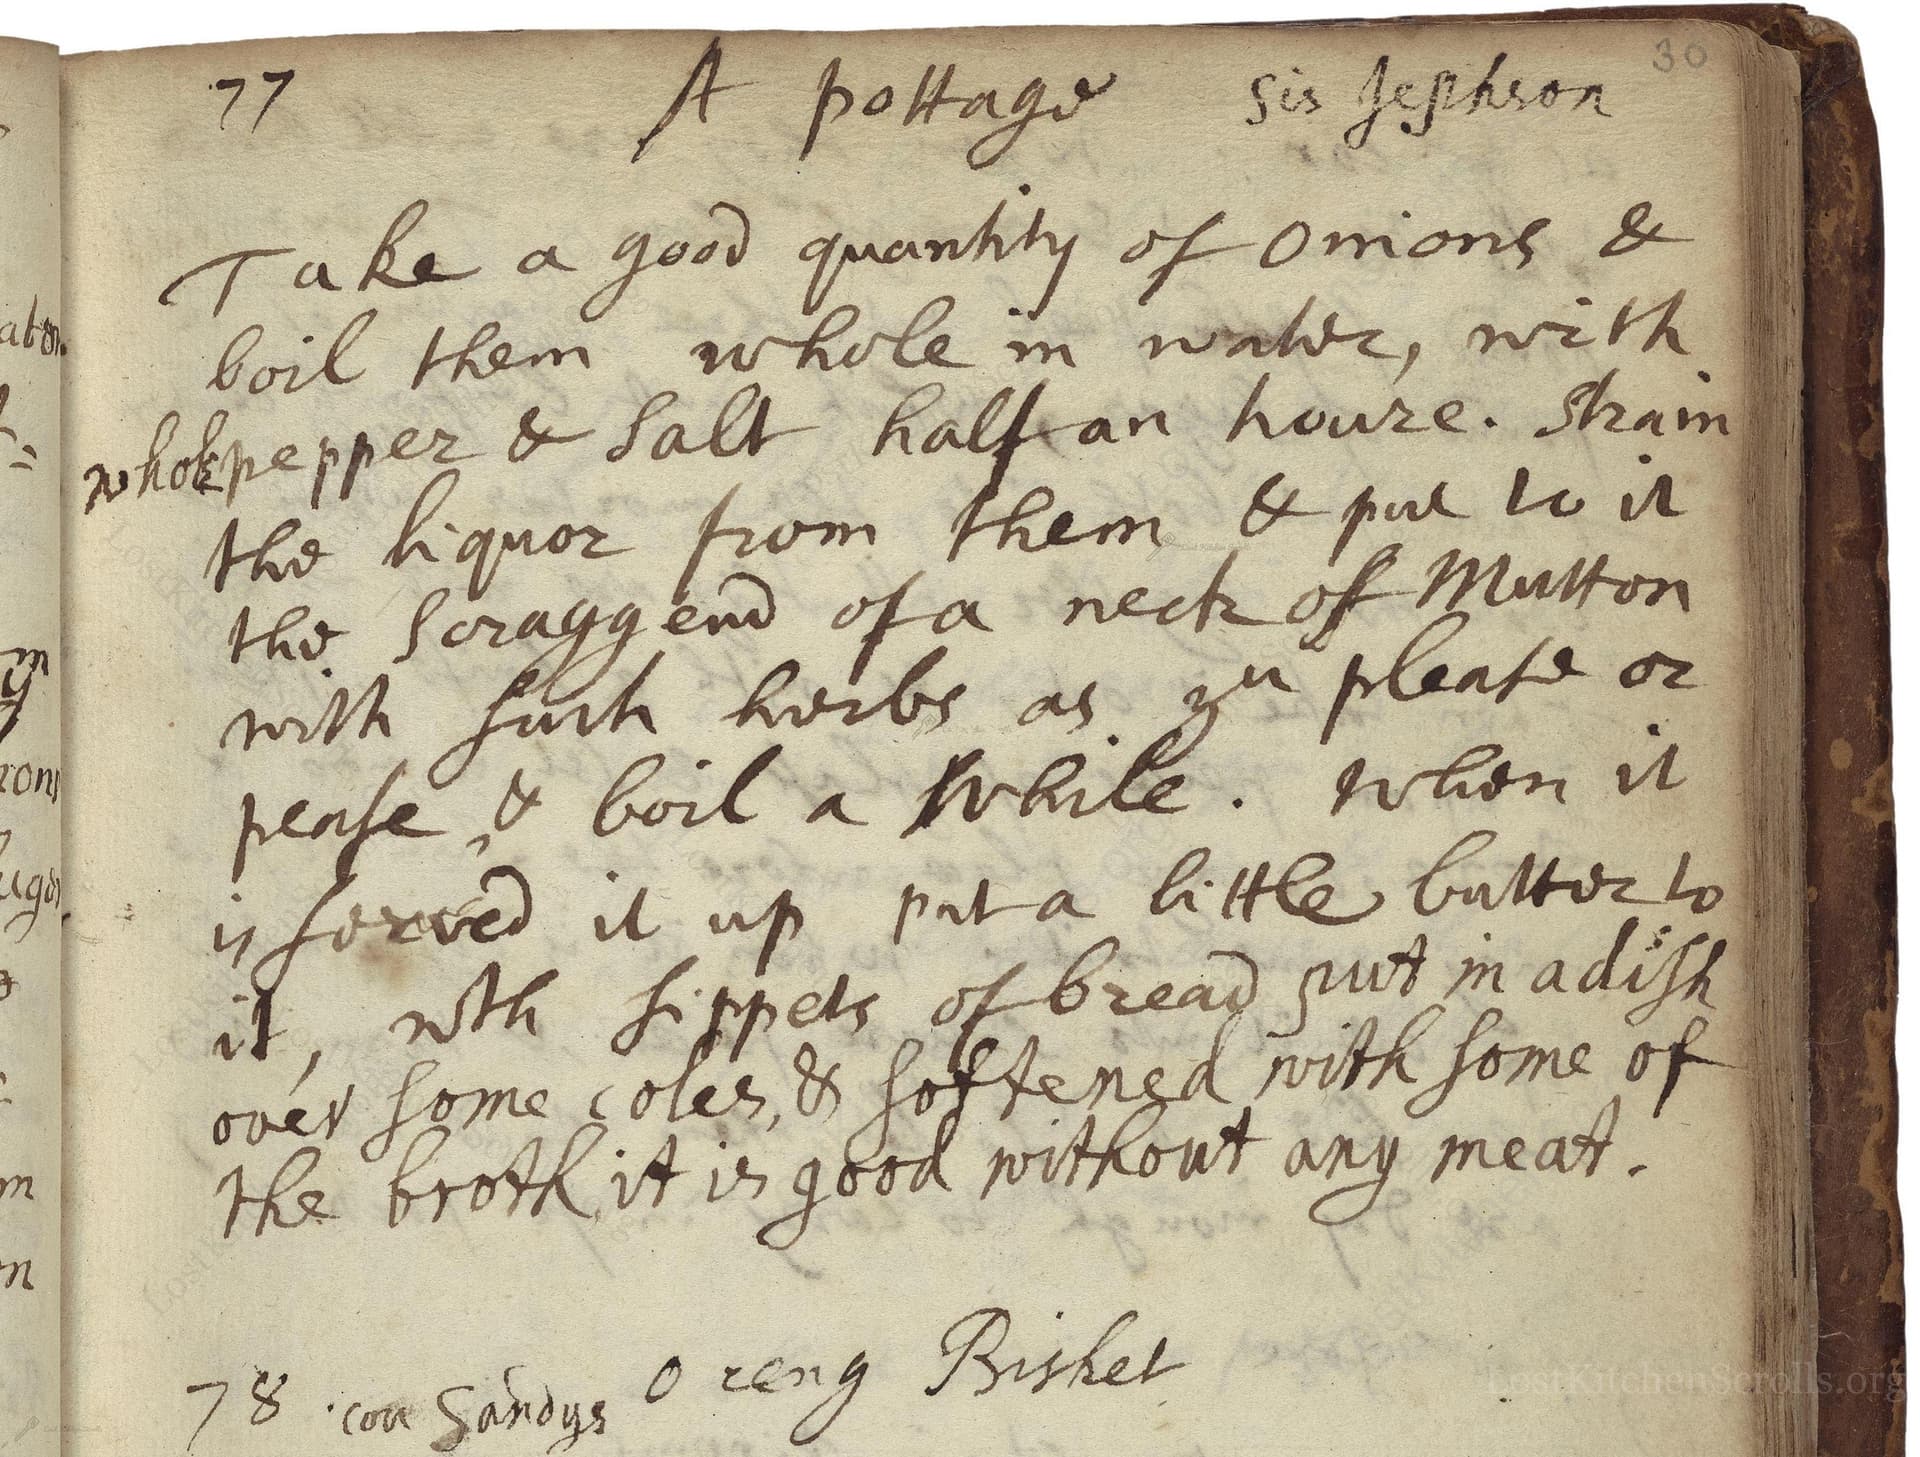 30
77 A pottage Sis Jephson
Take a good quantity of Onions &
boil them whole in water, with
whole pepper & Salt half an houre. Strain
the liquor from them & put to it
the Scragg end of a neck of Mutton
with such herbs as yu please or
pease, & boil a While. When it
is served it up put a little butter to
it, wth sippets of bread put in a dish
over some coles, & softened with some of
the broth, it is good without any meat.
78 cou Sandys Oreng Bisket
KitchenScrolls.org